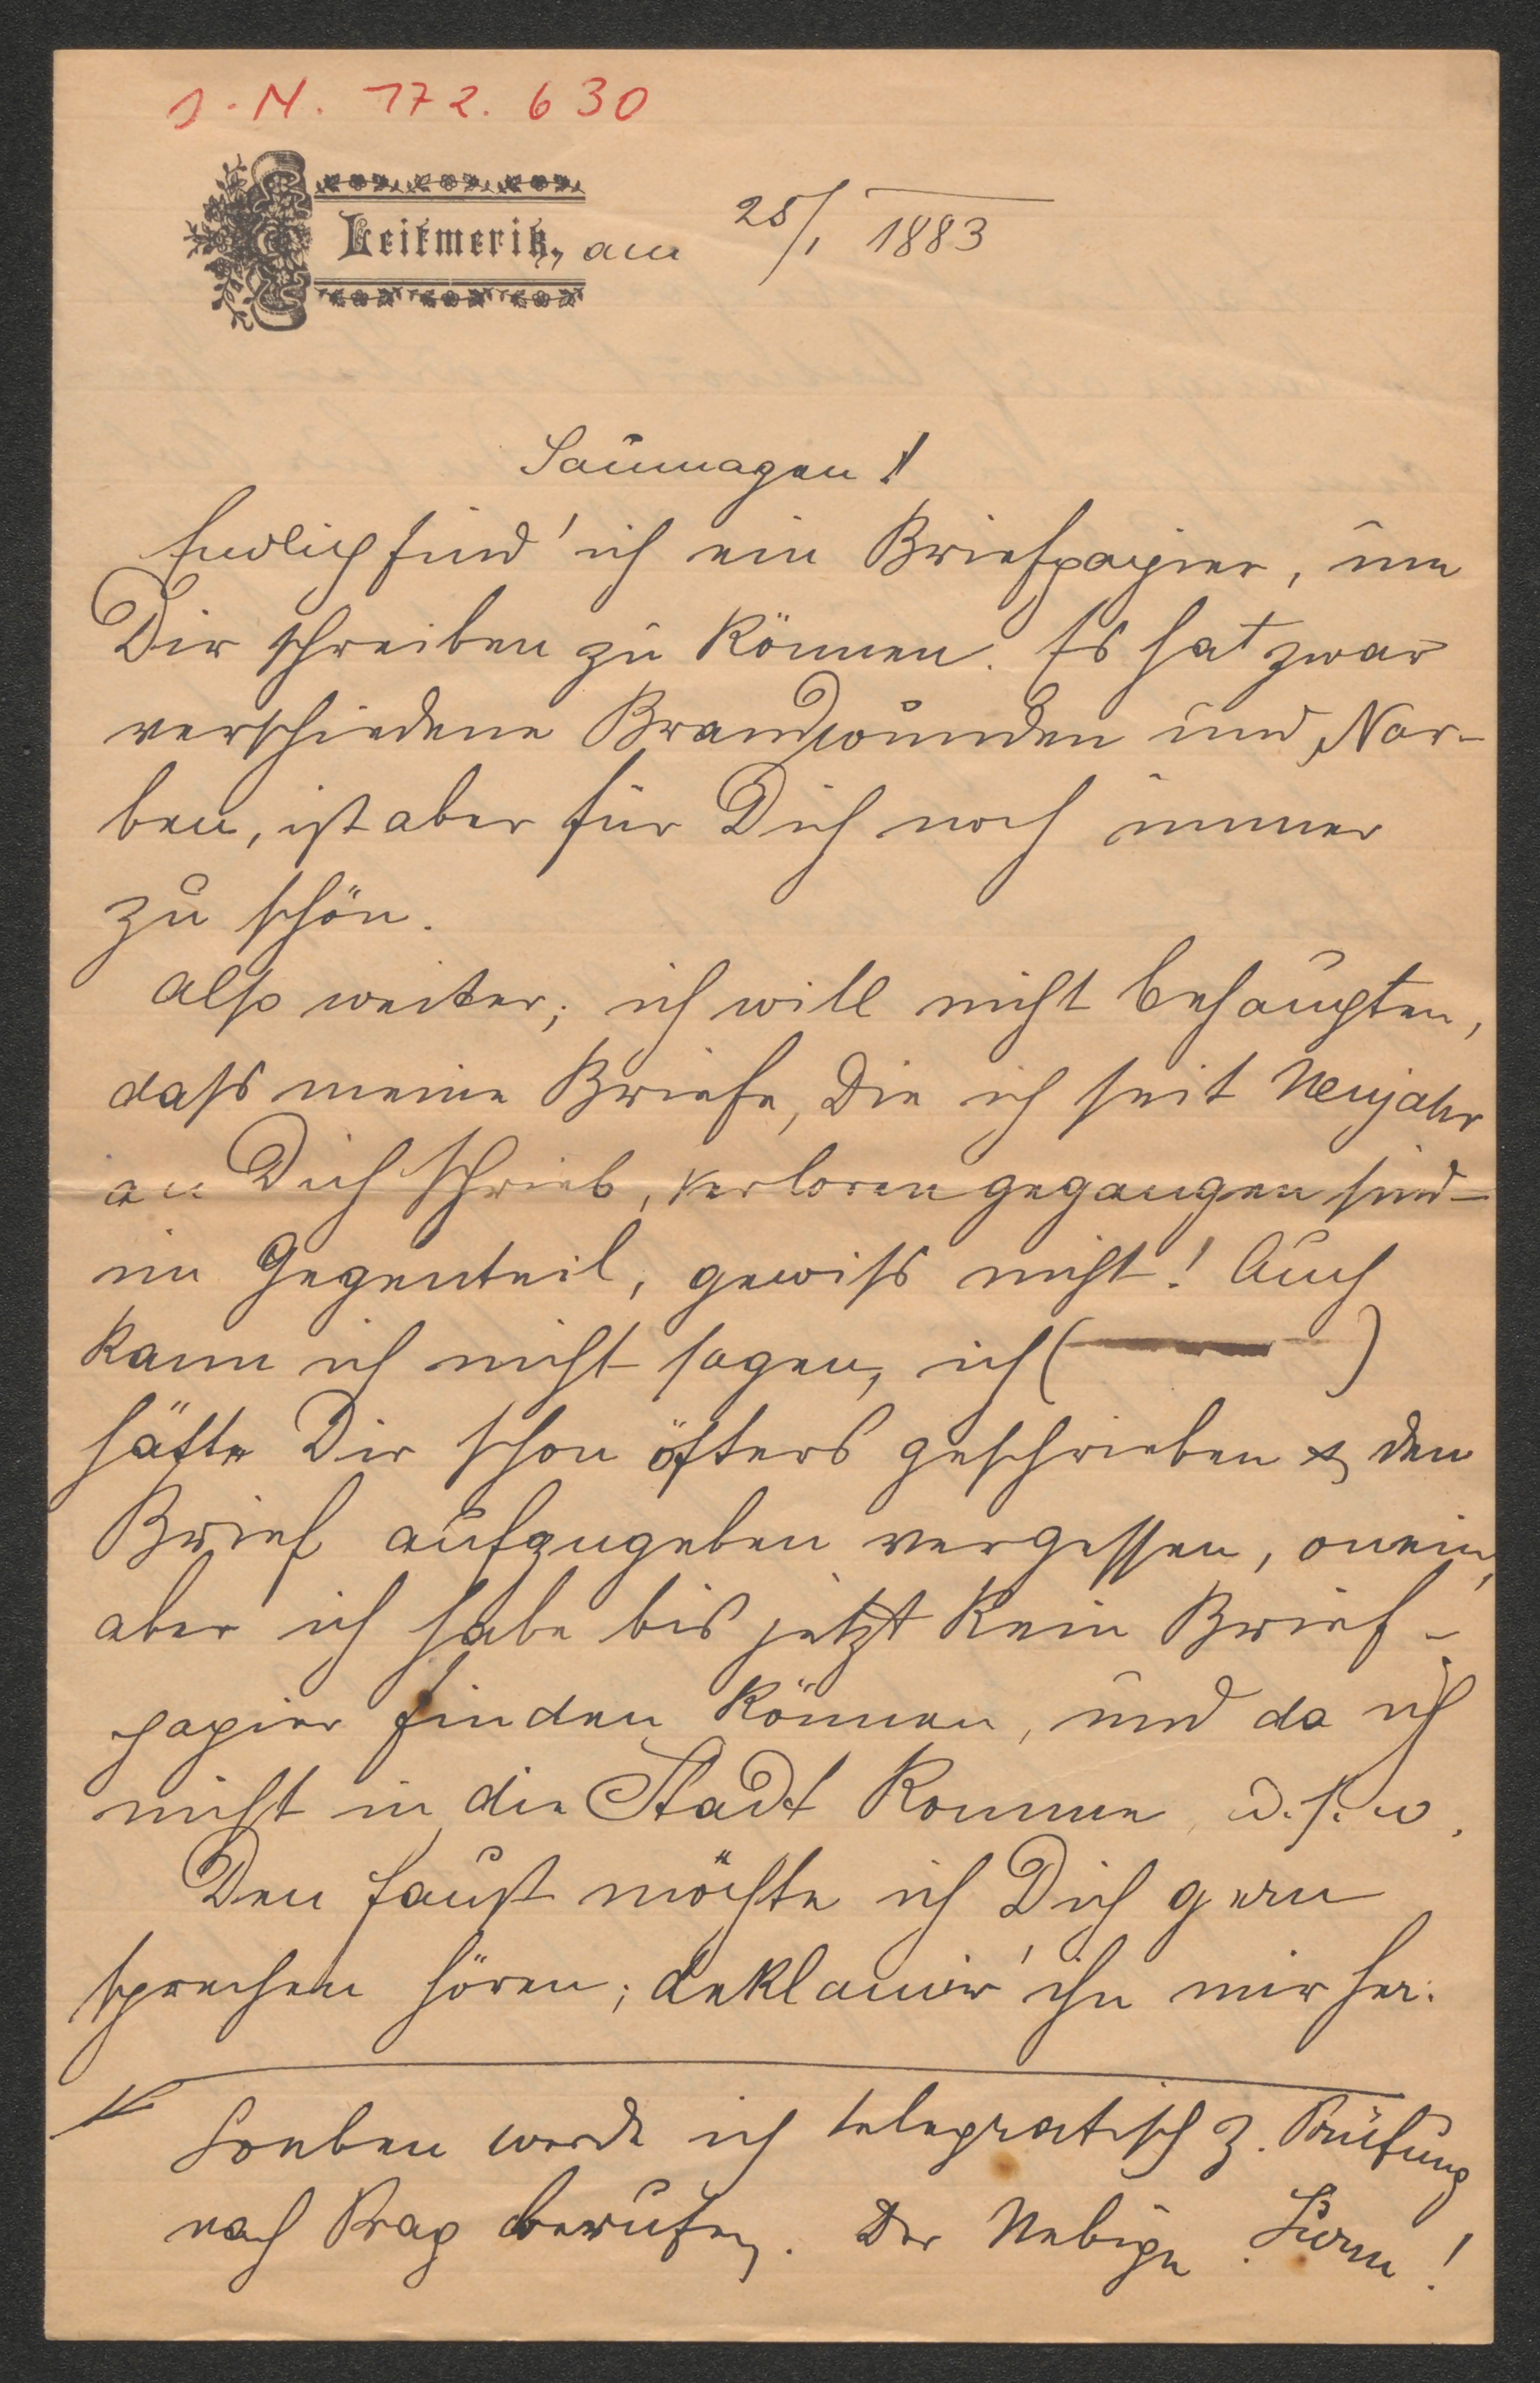 J. N. 172.630
Leitmeritz, am 25/1 1883
Saumagen!
Endlich find' ich ein Briefpapier, um
Dir schreiben zu können. Es hat zwar
verschiedene Brandwunden und Nar-
ben, ist aber für Dich noch immer
zu schön.
Also weiter; ich will nicht behaupten,
dass meine Briefe, die ich seit Neujahr
an Dich schrieb, verloren gegangen sind –
im Gegenteil, gewiss nicht! Auch
kann ich nicht sagen, ich ( )
hätte Dir schon öfters geschrieben & den
Brief aufzugeben vergessen, o nein,
aber ich habe bis jetzt kein Brief-
papier finden können, und da ich
nicht in die Stadt komme u. s. w.
Den Faust möchte ich Dich gern
sprechen hören; deklamir' ihn mir her.
Soeben werde ich telegratisch z. Prüfung
nach Prag berufen. Der Nebige